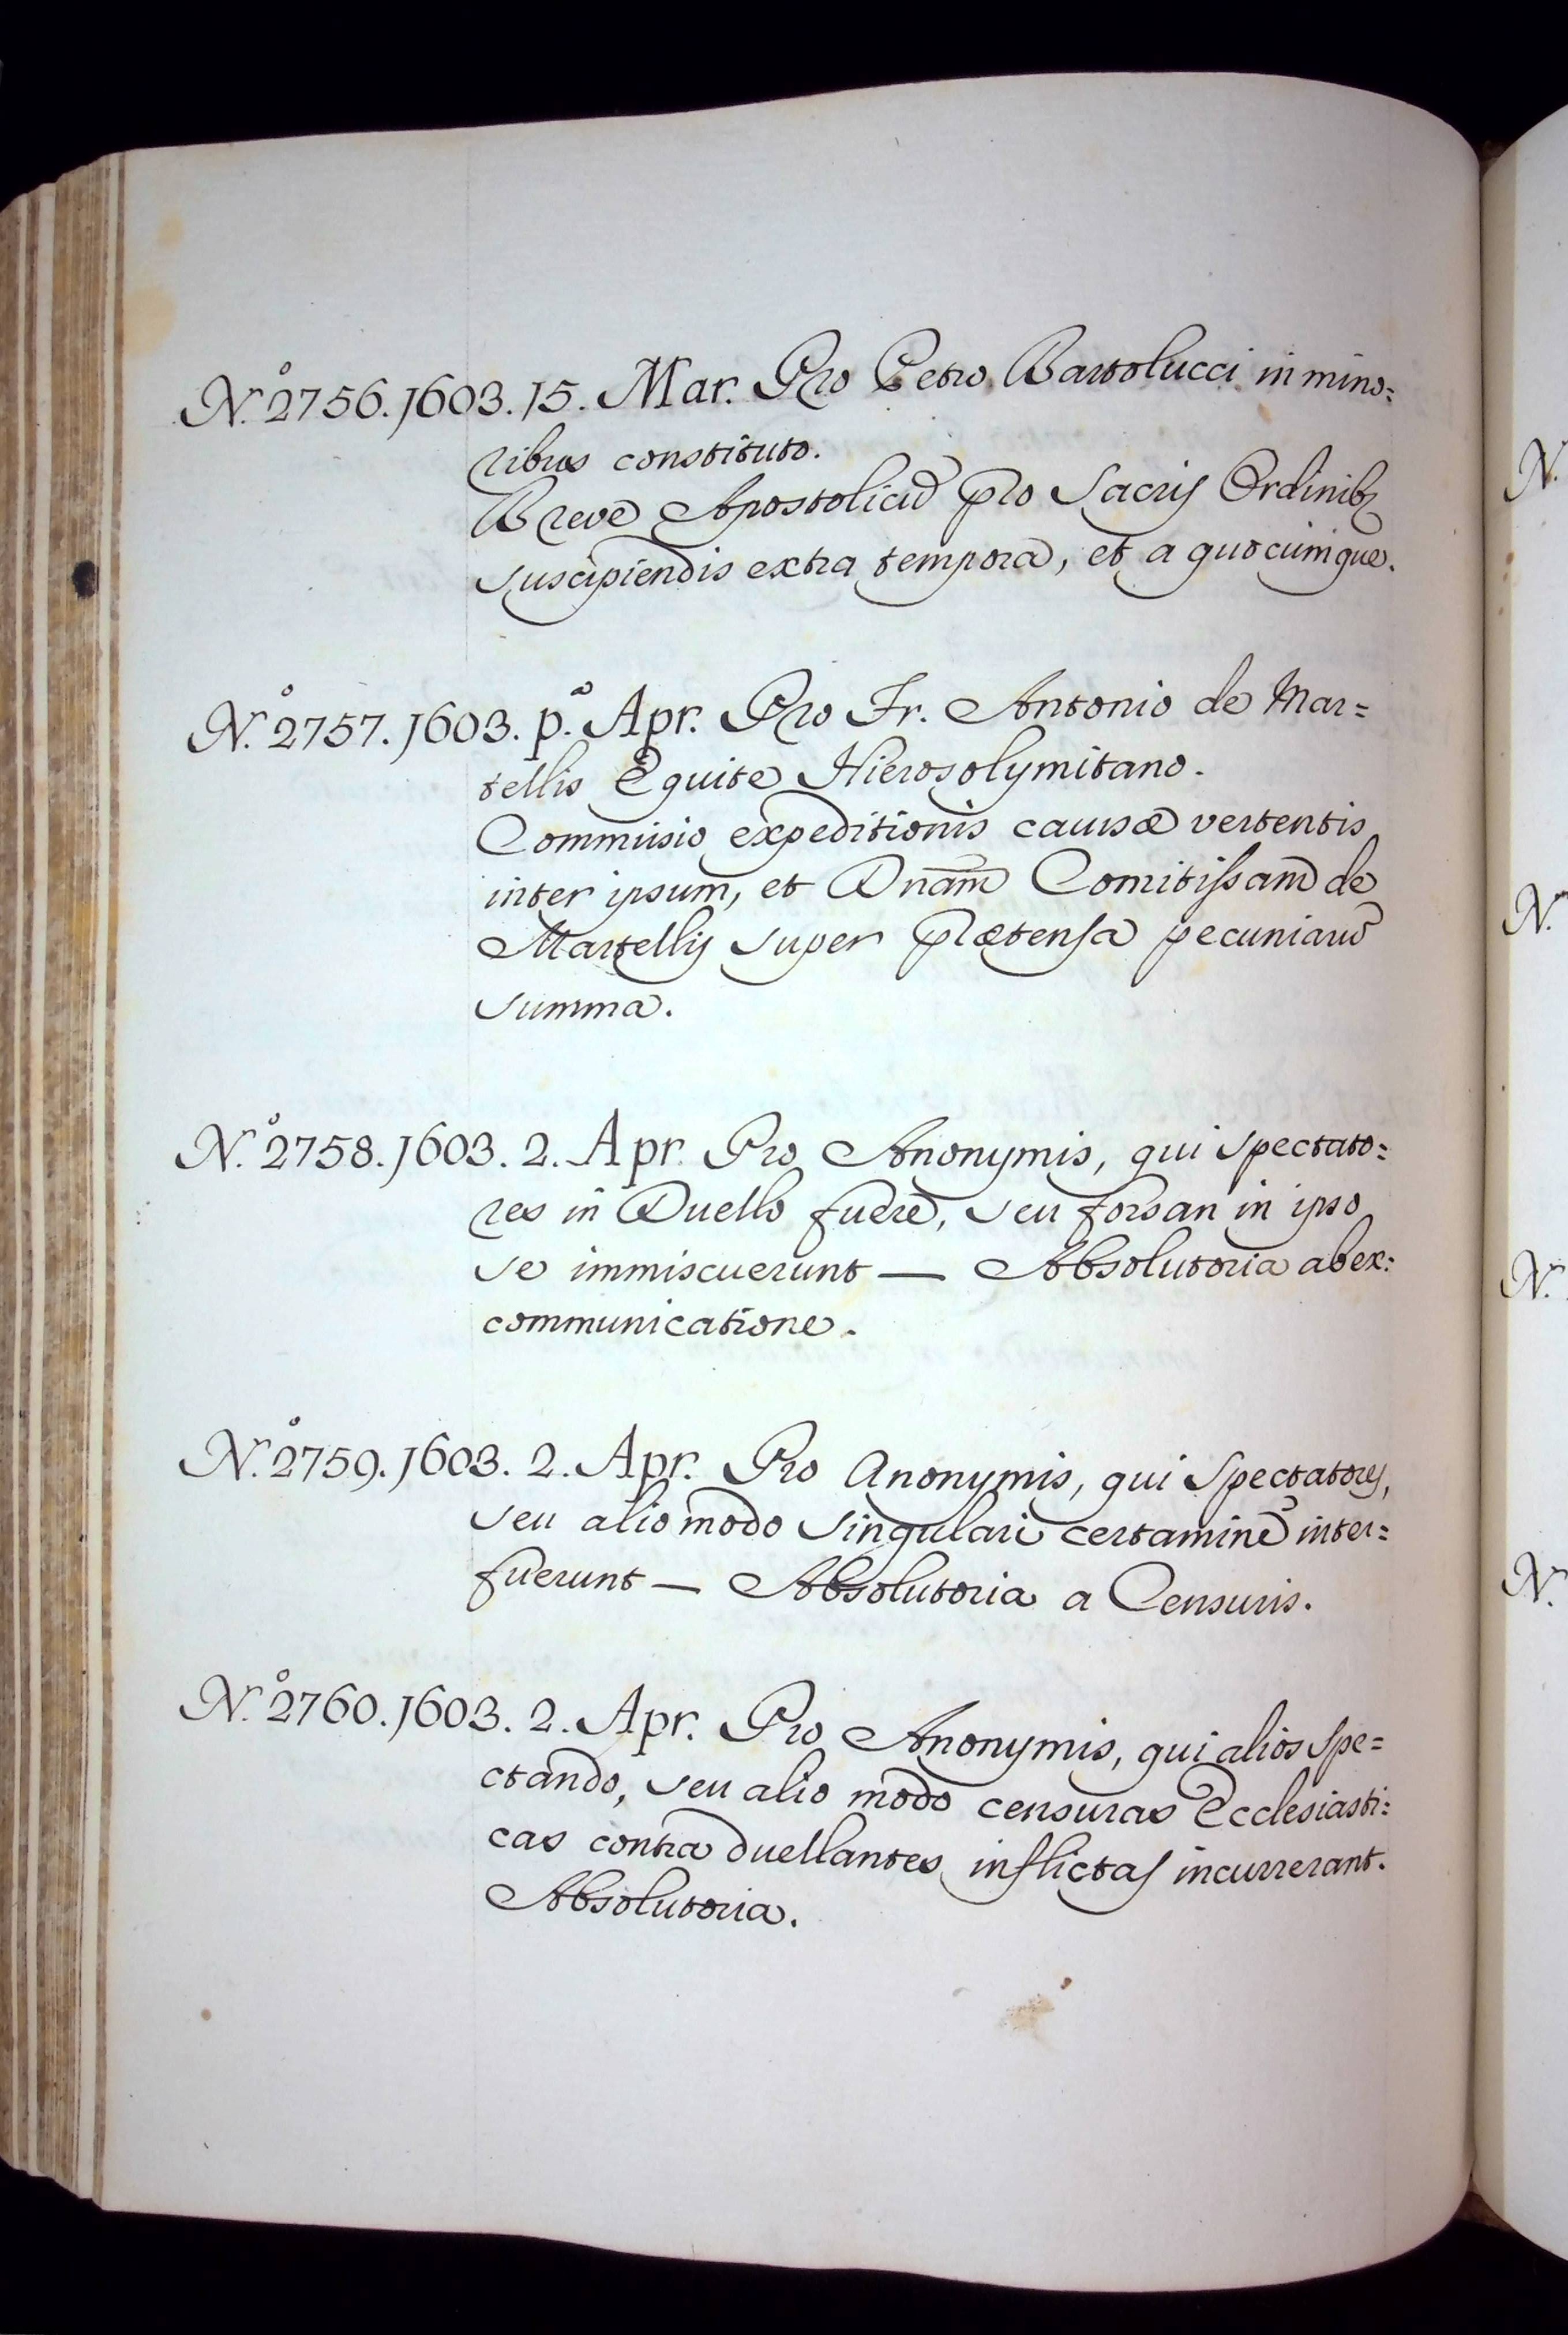 N.º 2756. 1603. 15. Mar. Pro Petro Bartolucci in mino=
ribus constituto.
Breve Apostolicū pro Sacris Ordinibꝫ
suscipiendis extra tempora, et a quocumque.
N.º 2757. 1603. p.ª Apr. Pro Fr. Antonio de Mar=
tellis Equite Hierosolymitano.
Commissio expeditionis causæ vertentis
inter ipsum, et Dnām Comitissam de
Martellis super prætensa pecuniarū
summa.
N.º 2758. 1603. 2. Apr. Pro Anonymis, qui spectato=
res in Duello fuere, seu forsan in ipso
se immiscuerunt — Absolutoria ab ex=
communicatione.
N.º 2759. 1603. 2. Apr. Pro Anonymis, qui spectatores,
seu alio modo singulari certamine inter=
fuerunt — Absolutoria a Censuris.
N.º 2760. 1603. 2. Apr. Pro Anonymis, qui alios spe=
ctando, seu alio modo censuras Ecclesiasti=
cas contra duellantes inflictas incurrerant.
Absolutoria.
N.
N.
N.
N.